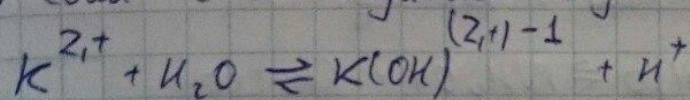 K^{2,+} + H₂O ⇌ K(OH)^{(2,+)-1} + H⁺